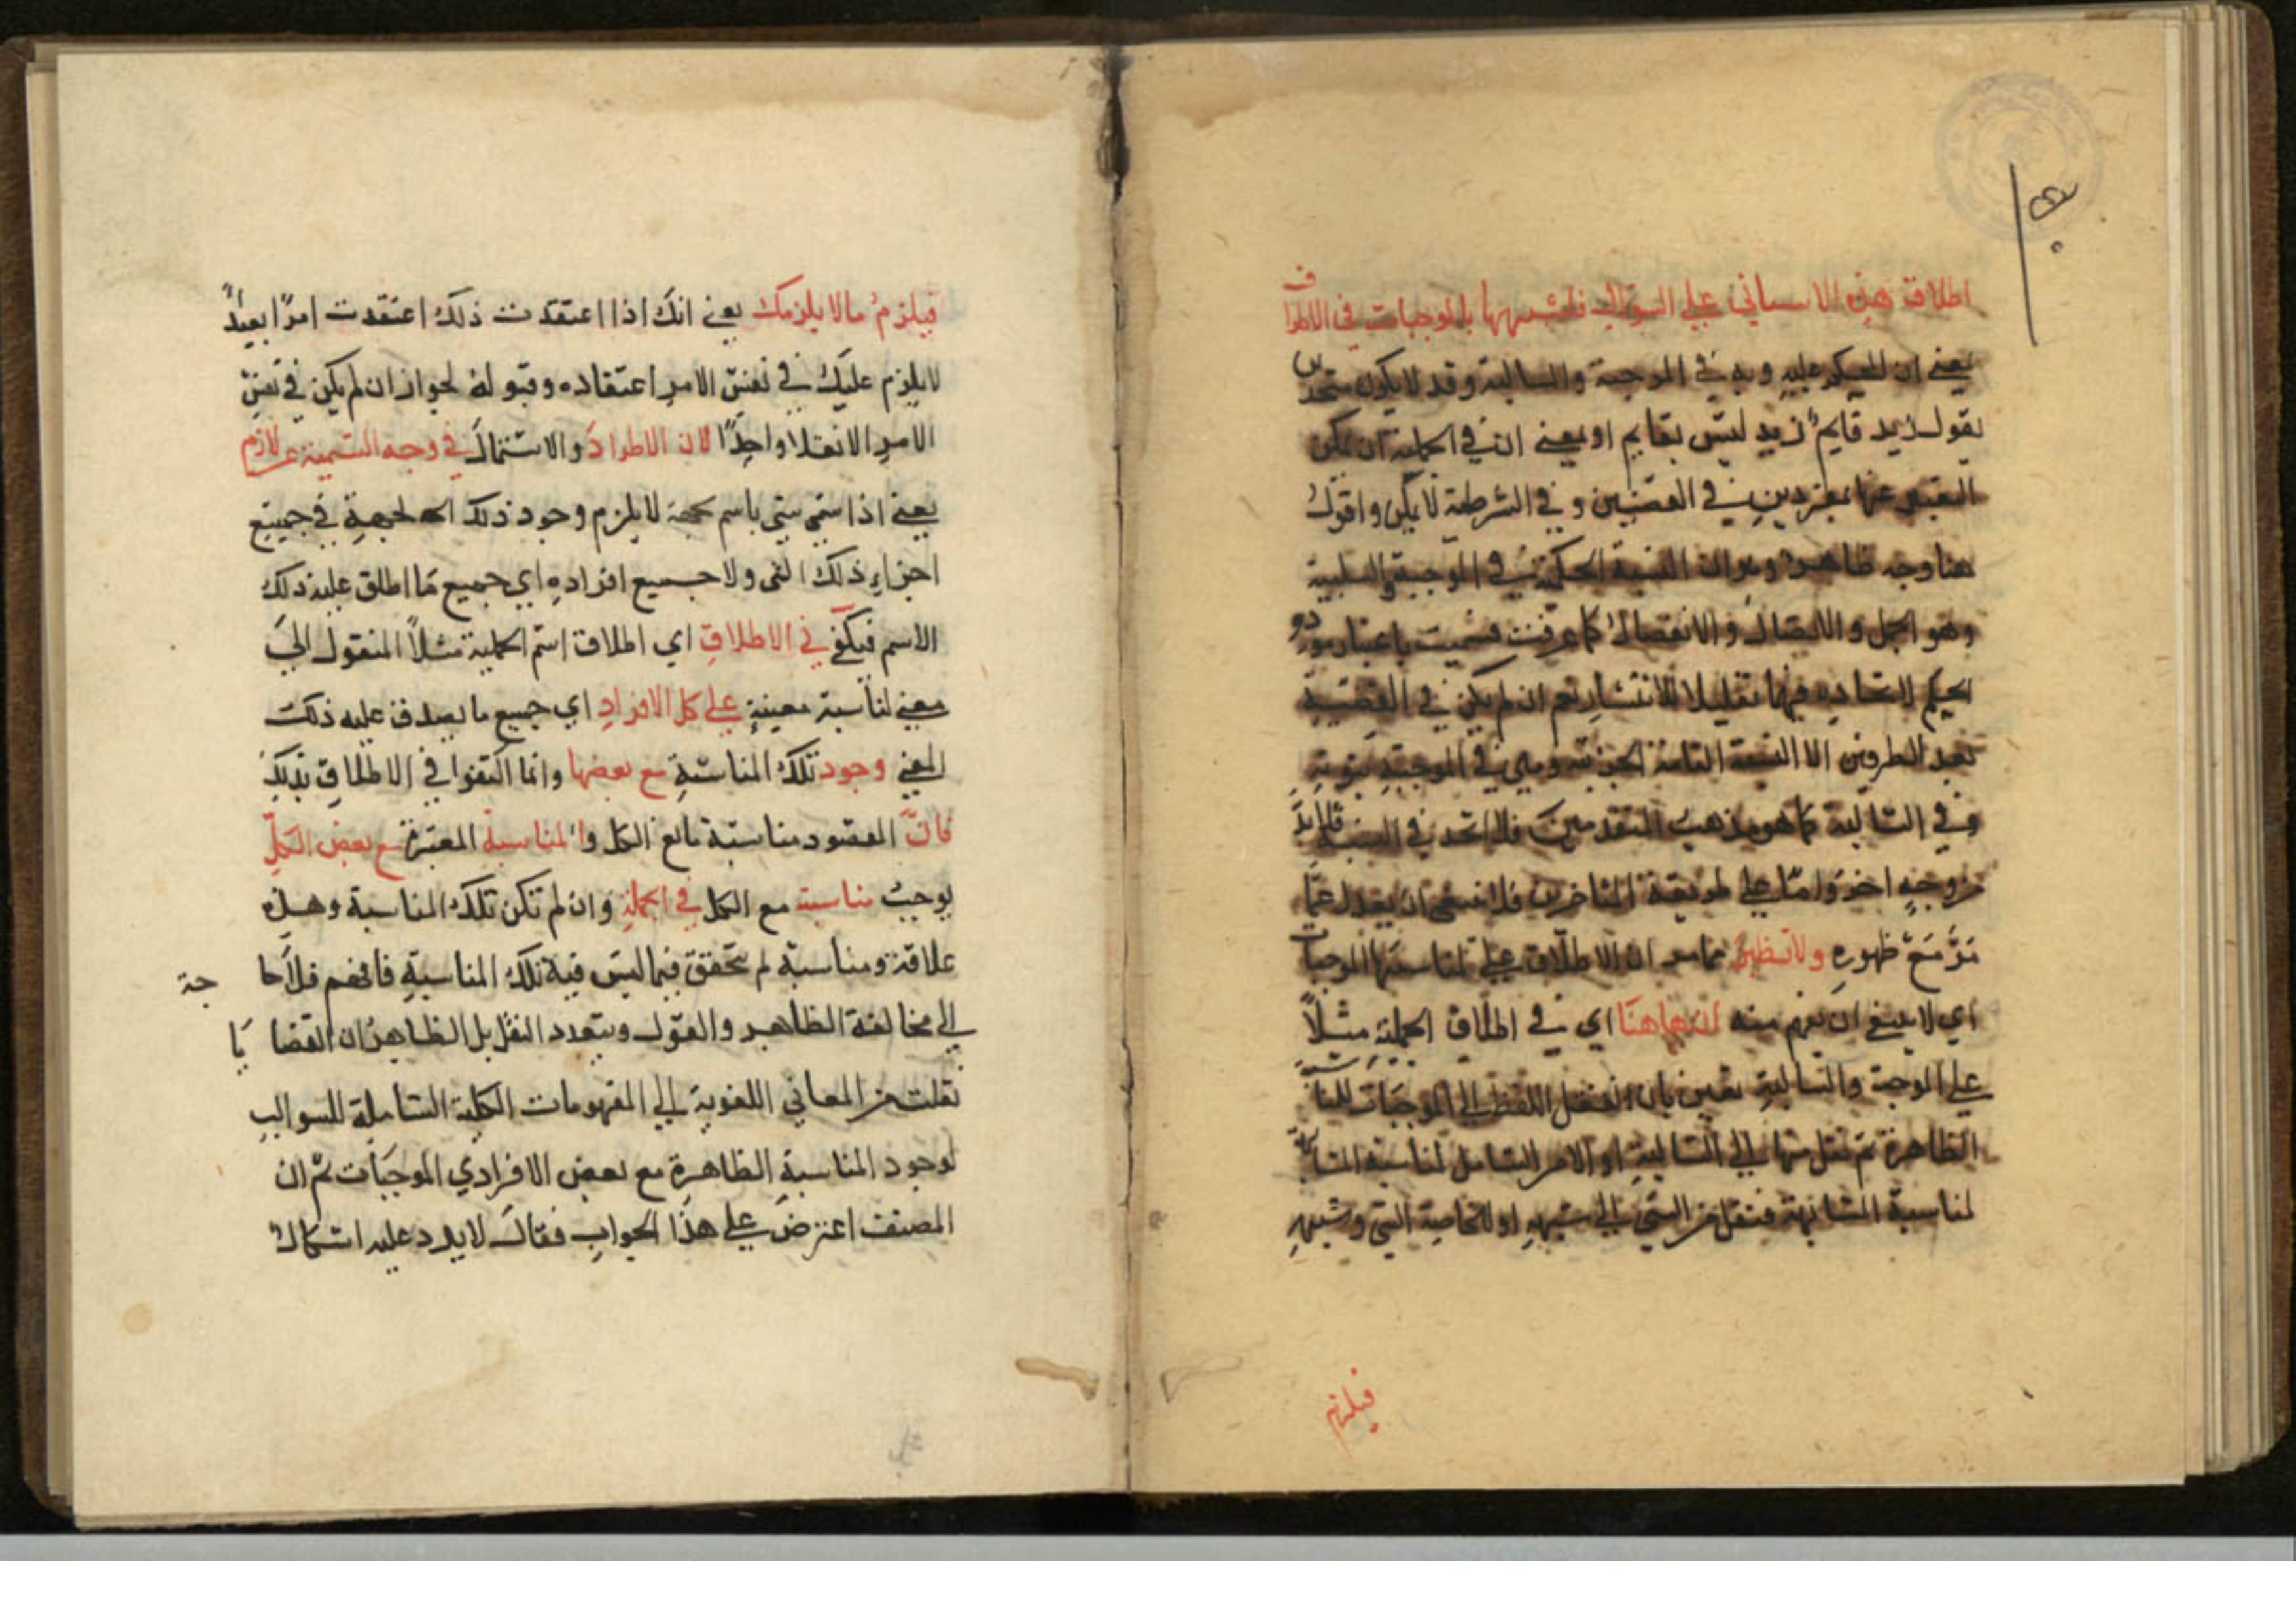 اطلاق هذه الاسامي علي السوالب فلتشبهها بالموجبات في الاطرا
ف
يعني ان المحكوم عليه وبه في الموجبة والسالبة وقد لا يكون متحد
ين
يقول زيد قايم زيد ليس بقايم او يعني ان في الحملية ان يكن
التعبير عنها بمفردين في القضيتين و في الشرطية لا يكن واقول
هنا وجه ظاهر وهو ان النسبة الحكمية في الموجبة والسلبية
وهو الحمل والاتصال والانفصال كما عرفت فسميت باعتبار مور
دو
الحكم لاتحاده فيها تقليلا للانتشار نعم ان لم يكن في القضية
بعد الطرفين الا النسبة التامة الخبرية وهي في الموجبة ثبوتية
وفي السالبة كما هو مذهب المتقدمين فلا اتحد في النسبة فلا بد
من وجه اخر واما علي طريقة المتاخرين فلا ينبغي ان يعدل عما
مر مع ظهوره ولا تظن مما مر ان الاطلاق علي لمناسبتها الموجبات
اي لا ينبغي ان يفهم منه ان هاهنا اي في اطلاق الحملية مثلاً
علي الموجبة والسالبة نقلين بان النقل اللفظ الي الموجبات للمنا
سبة
الظاهرة ثم نقل منها الي السالبة او الامر الشامل لمناسبة المشا
بهة
لمناسبة المشابهة فينقل من الشي الي شبهه او للخاصية الشي وشبهه
فيلزم
فيلزمُ ما لا يلزمك يعني انك اذا اعتقدت ذلك اعتقدت امرًا بعيدًا
لا يلزم عليك في نفس الامر اعتقاده وقبوله لجواز ان لم يكن في نفس
الامر الا نقلا واحدًا لان الاطراد والاشتمال في وجه التسمية غير لازم
يعني اذا سمي شي باسم بجهة لا يلزم وجود ذلك الجهة في جميع
اجزاء ذلك الشي ولا جميع افراده اي جميع ما اطلق عليه ذلك
الاسم فيكفي في الاطلاق اي اطلاق اسم الحملية مثلاً المنقول الي
معني لمناسبة معينة علي كل الافراد اي جميع ما يصدق عليه ذلك
المعني وجود تلك المناسبة مع بعضها وانما اكتفوا في الاطلاق بذلك
فان المقصود مناسبة ما مع الكل والمناسبة المعتبرة مع بعض الكل
يوجب مناسبة مع الكل في الجملة وان لم تكن تلك المناسبة وهذه
علاقة ومناسبة لم تحقق فيما ليس فيه تلك المناسبة فافهم فلا حا
جة
الي مخالفة الظاهر والقول وبتعدد النقل بل الظاهر ان القضا يا
نقلت من المعاني اللغوية الي المفهومات الكلية الشاملة للسوالب
لوجود المناسبة الظاهرة مع بعض الافراد اي الموجبات ثم ان
المصنف اعترض علي هذا الجواب فقال لا يرد عليه اشكال